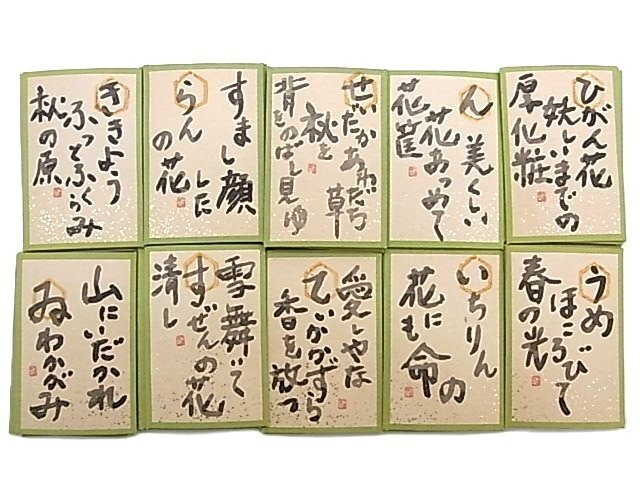 ひがん花
妖しいまでの
厚化粧
ん 美くしい
花あつめて
花筐
せいだかあわだち
草
秋を
背をのばし見ゆ
すまし顔
した
らんの花
ききよう
ふっとふくらみ
秋の原
うめ
ほころびて
春の光
いちりんの
花にも命
愛しやな
ていかかずら
香を放つ
雪舞いて
すいぜんの花
清し
山にいだかれ
ゐわかがみ